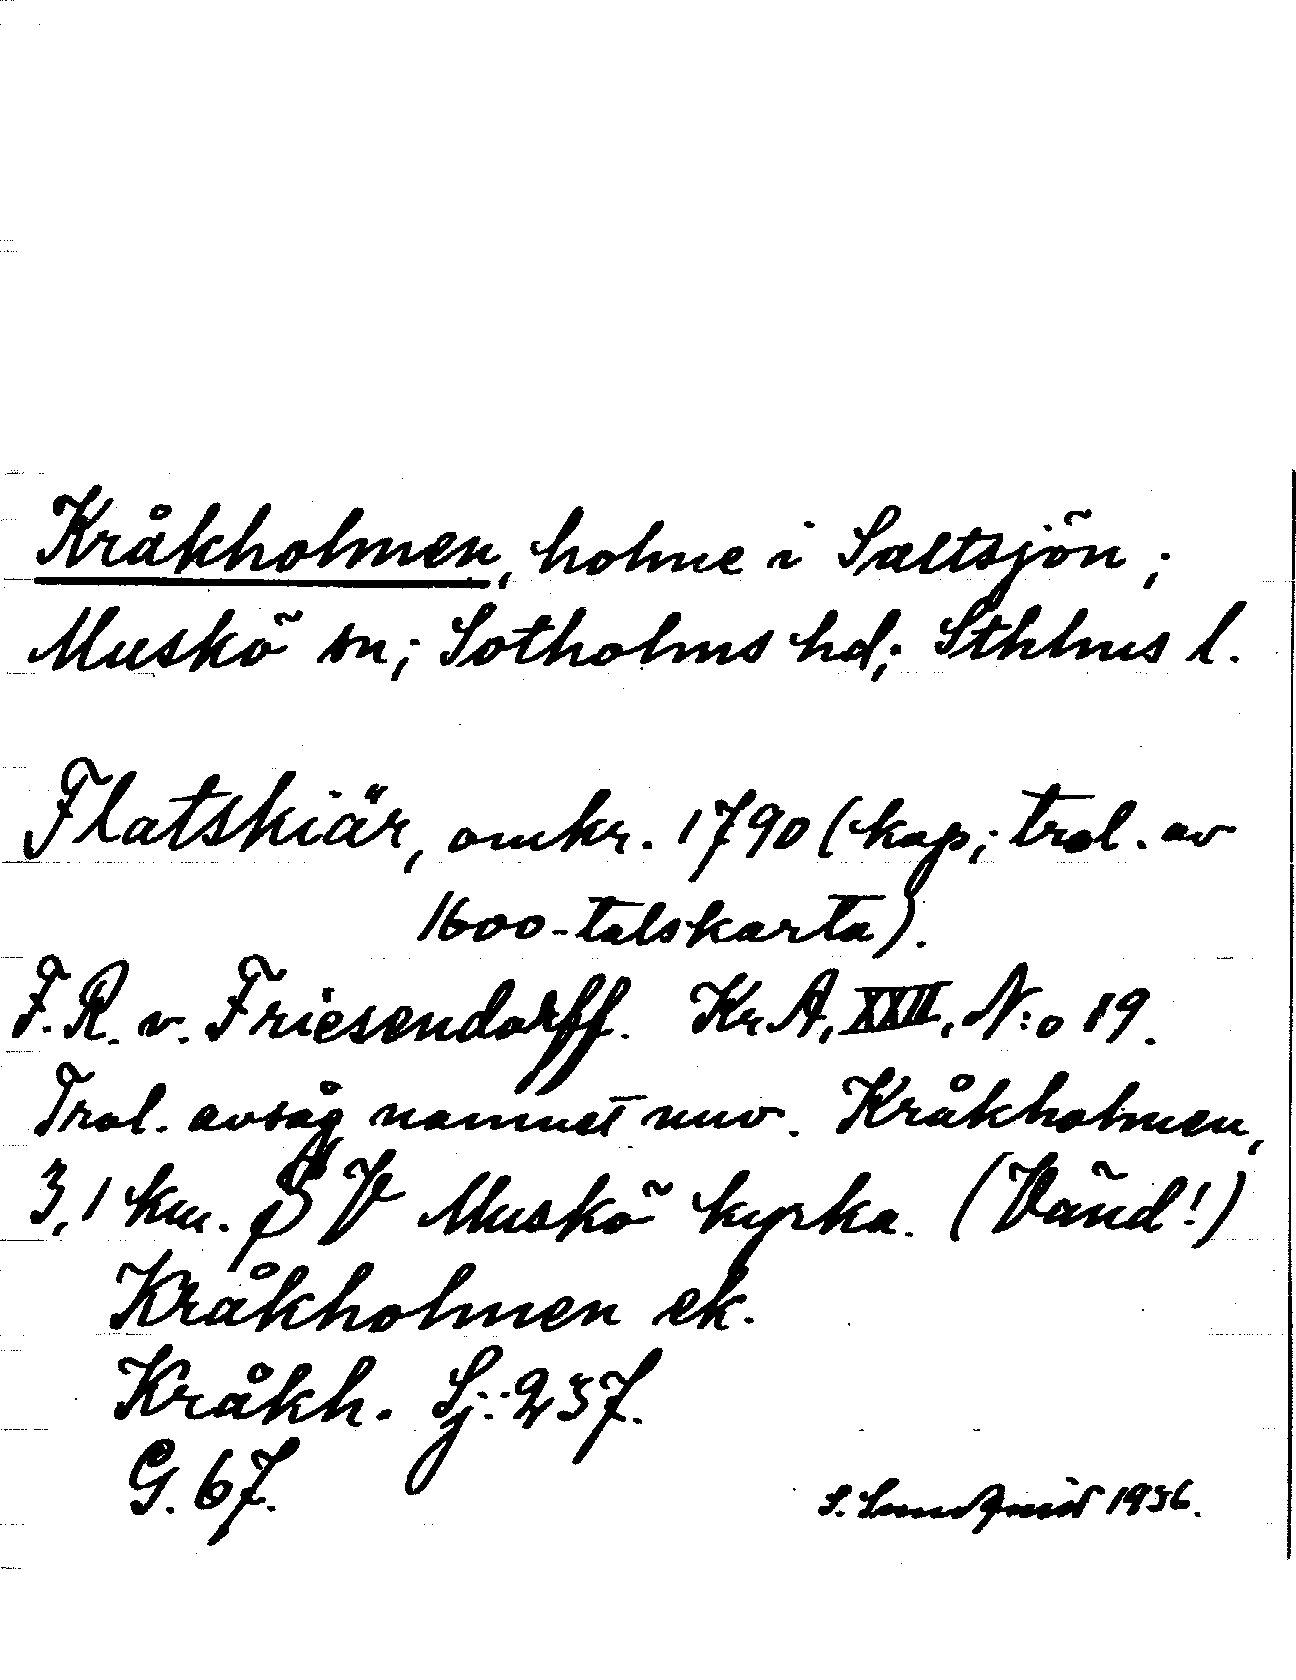 Kråkholmen, holme i Saltsjön;
Muskö sn; Sotholms hd; Sthlms l.
Flatskiär, omkr. 1790 (kop; trol. av
1600-talskarta).
F. R. v. Friesendorff. KrA, XXII, N:o 19.
Trol. avsåg namnet nuv. Kråkholmen,
3,1 km. S V Muskö kyrka. (Vänd!)
Kråkholmen ek.
Kråkh. Sj: 237.
G. 67.
S. Lundqvist 1936.